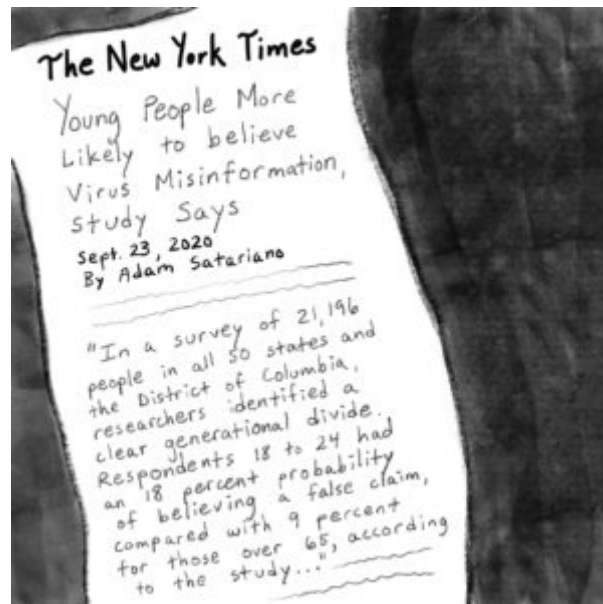 The New York Times
Young People More
Likely to believe
Virus Misinformation,
study Says
Sept. 23, 2020
By Adam Satariano
"In a survey of 21,196
people in all 50 states and
the District of Columbia,
researchers identified a
clear generational divide.
Respondents 18 to 24 had
an 18 percent probability
of believing a false claim,
compared with 9 percent
for those over 65, according
to the study..."